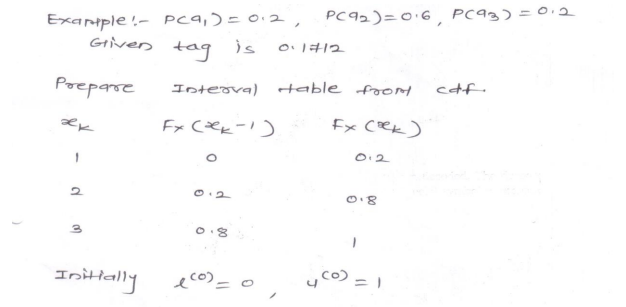 Example:- P(a₁) = 0.2, P(a₂) = 0.6, P(a₃) = 0.2
Given tag is 0.1712
Prepare Interval table from cdf.
xₖ Fx(xₖ-1) Fx(xₖ)
1 0 0.2
2 0.2 0.8
3 0.8 1
Initially l⁽⁰⁾ = 0, u⁽⁰⁾ = 1